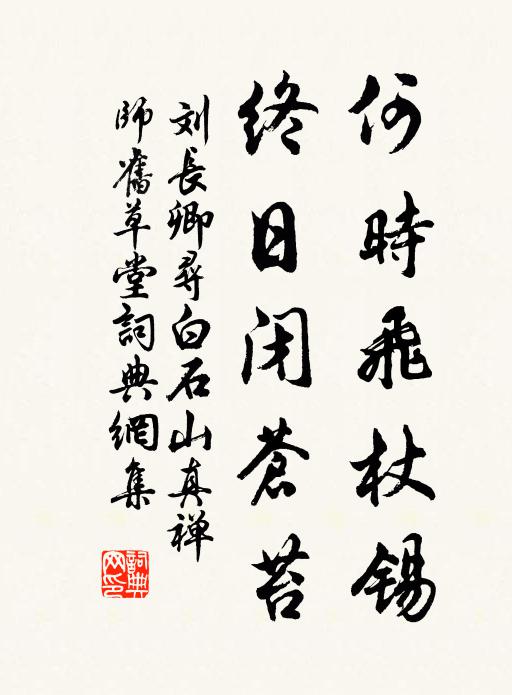 何時飛杖锡
终日闭蒼苔
刘長卿尋白石山真禅
師舊草堂詞典網集
詞典网印